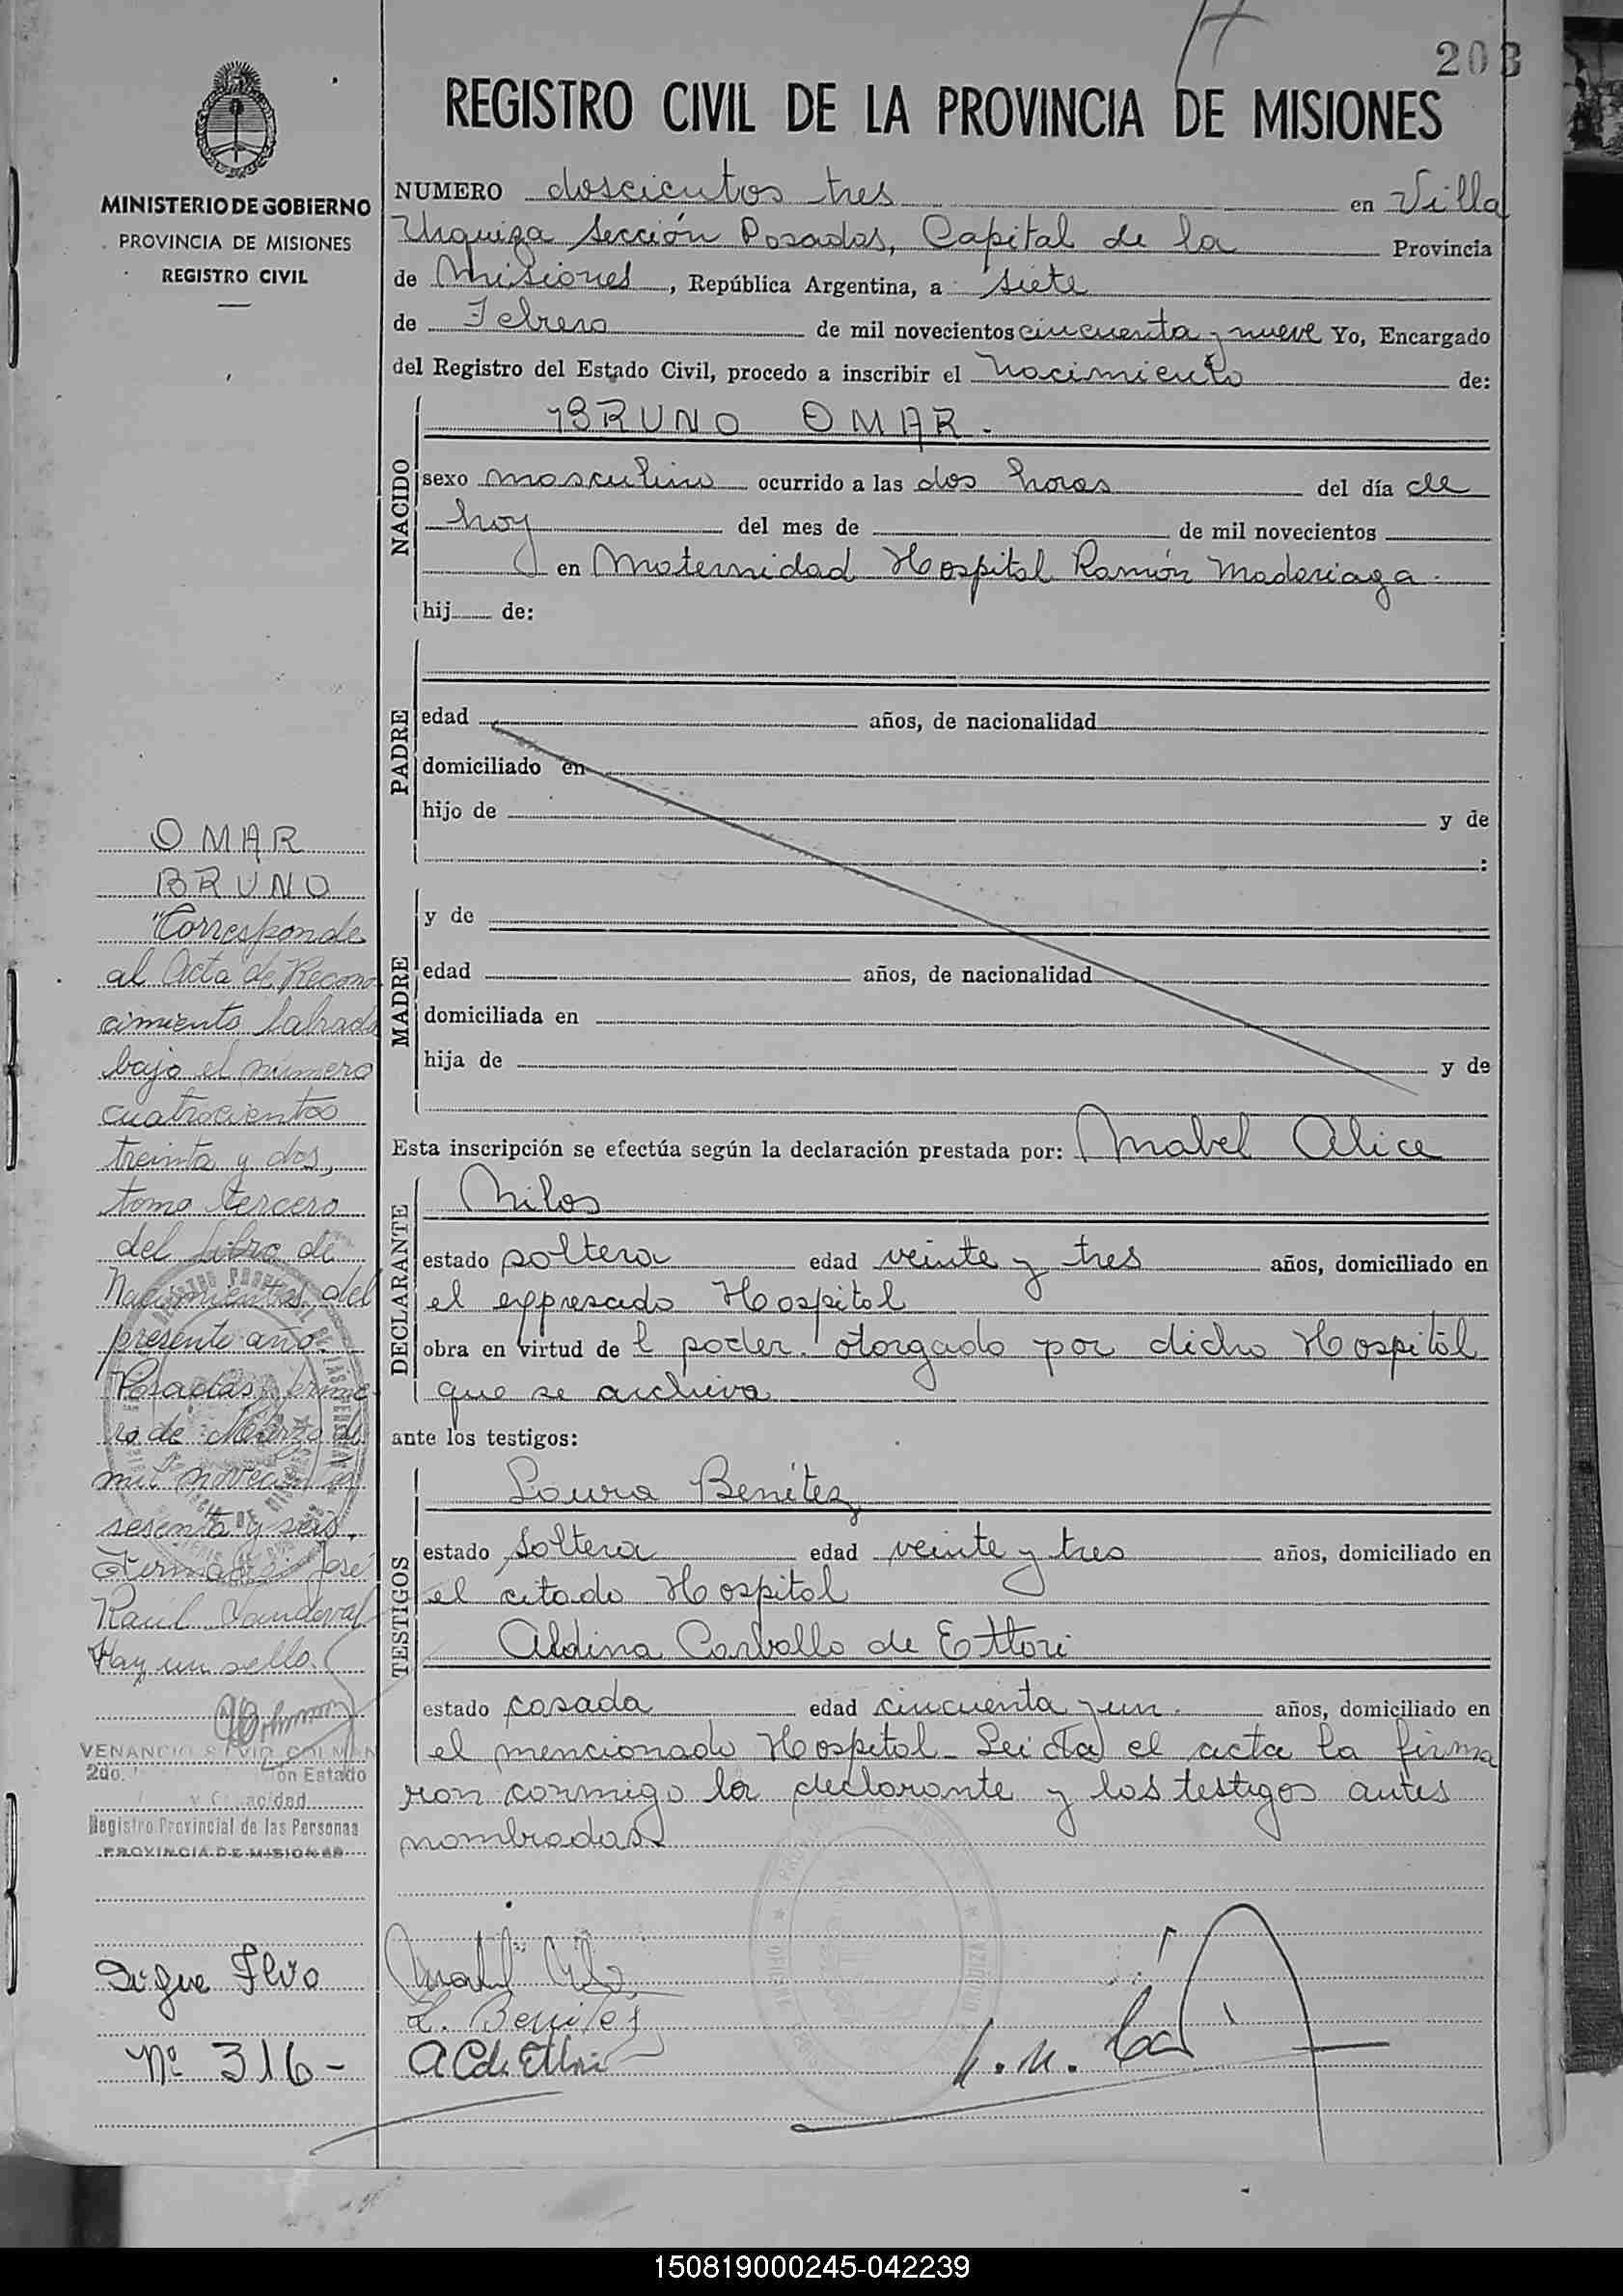 203
REGISTRO CIVIL DE LA PROVINCIA DE MISIONES
MINISTERIO DE GOBIERNO
PROVINCIA DE MISIONES
REGISTRO CIVIL
NUMERO doscientos tres en Villa
Urquiza Sección Posadas, Capital de la Provincia
de Misiones, República Argentina, a siete
de Febrero de mil novecientos cincuenta y nueve Yo, Encargado
del Registro del Estado Civil, procedo a inscribir el nacimiento de:
NACIDO
BRUNO OMAR.
sexo masculino ocurrido a las dos horas del día de
hoy del mes de de mil novecientos
en Maternidad Hospital Ramón Madariaga.
hij de:
PADRE
edad años, de nacionalidad
domiciliado en
hijo de y de
:
MADRE
y de
edad años, de nacionalidad
domiciliada en
hija de y de
Esta inscripción se efectúa según la declaración prestada por: Mabel Alice
DECLARANTE
Milos
estado soltera edad veinte y tres años, domiciliado en
el expresado Hospital
obra en virtud de l poder otorgado por dicho Hospital
que se archiva
ante los testigos:
TESTIGOS
Laura Benítez
estado soltera edad veinte y tres años, domiciliado en
el citado Hospital
Aldina Carballo de Ettori
estado casada edad cincuenta y un. años, domiciliado en
el mencionado Hospital- Leida el acta la firma
ron conmigo la declarante y los testigos antes
nombradas.
OMAR
BRUNO
"Corresponde
al Acta de Recono
cimiento labrada
bajo el número
cuatrocientos
treinta y dos,
tomo tercero
del Libro de
Nacimientos del
presente año.
Posadas, prime
ro de Marzo de
mil novecientos
sesenta y seis.
Firmado: José
Raúl Sandoval
Hay un sello
VENANCIO SILVIO COLMAN
2do. ón Estado
y Capacidad
Registro Provincial de las Personas
PROVINCIA DE MISIONES
Sigue Flio
Nº 316-
L. Benítez
A C de Ettori
URQUIZA
150819000245-042239